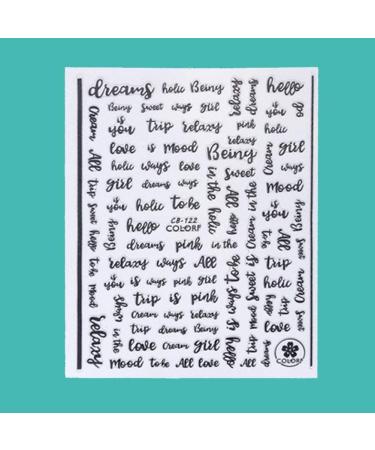 dreams holic Being
Being Sweet ways girl
is you trip relaxy
love is Mood
holic ways love
girl dreams ways
is you holic to be
hello CB-122
COLORF
dreams pink in the
relaxy ways All
is ways pink girl
you trip is pink
Cream ways relaxy
trip dreams Being
love Cream girl
Mood to be All love
Cream All trip sweet hello to be Mood
relaxy
Being
in the
relaxy dreams
hello
is you
go
pink holic
relaxy
Being
Sweet
in the holic
All hello
Cream girl
Mood
is you
trip
holic
trip
love
hello
All
dreams
COLORF